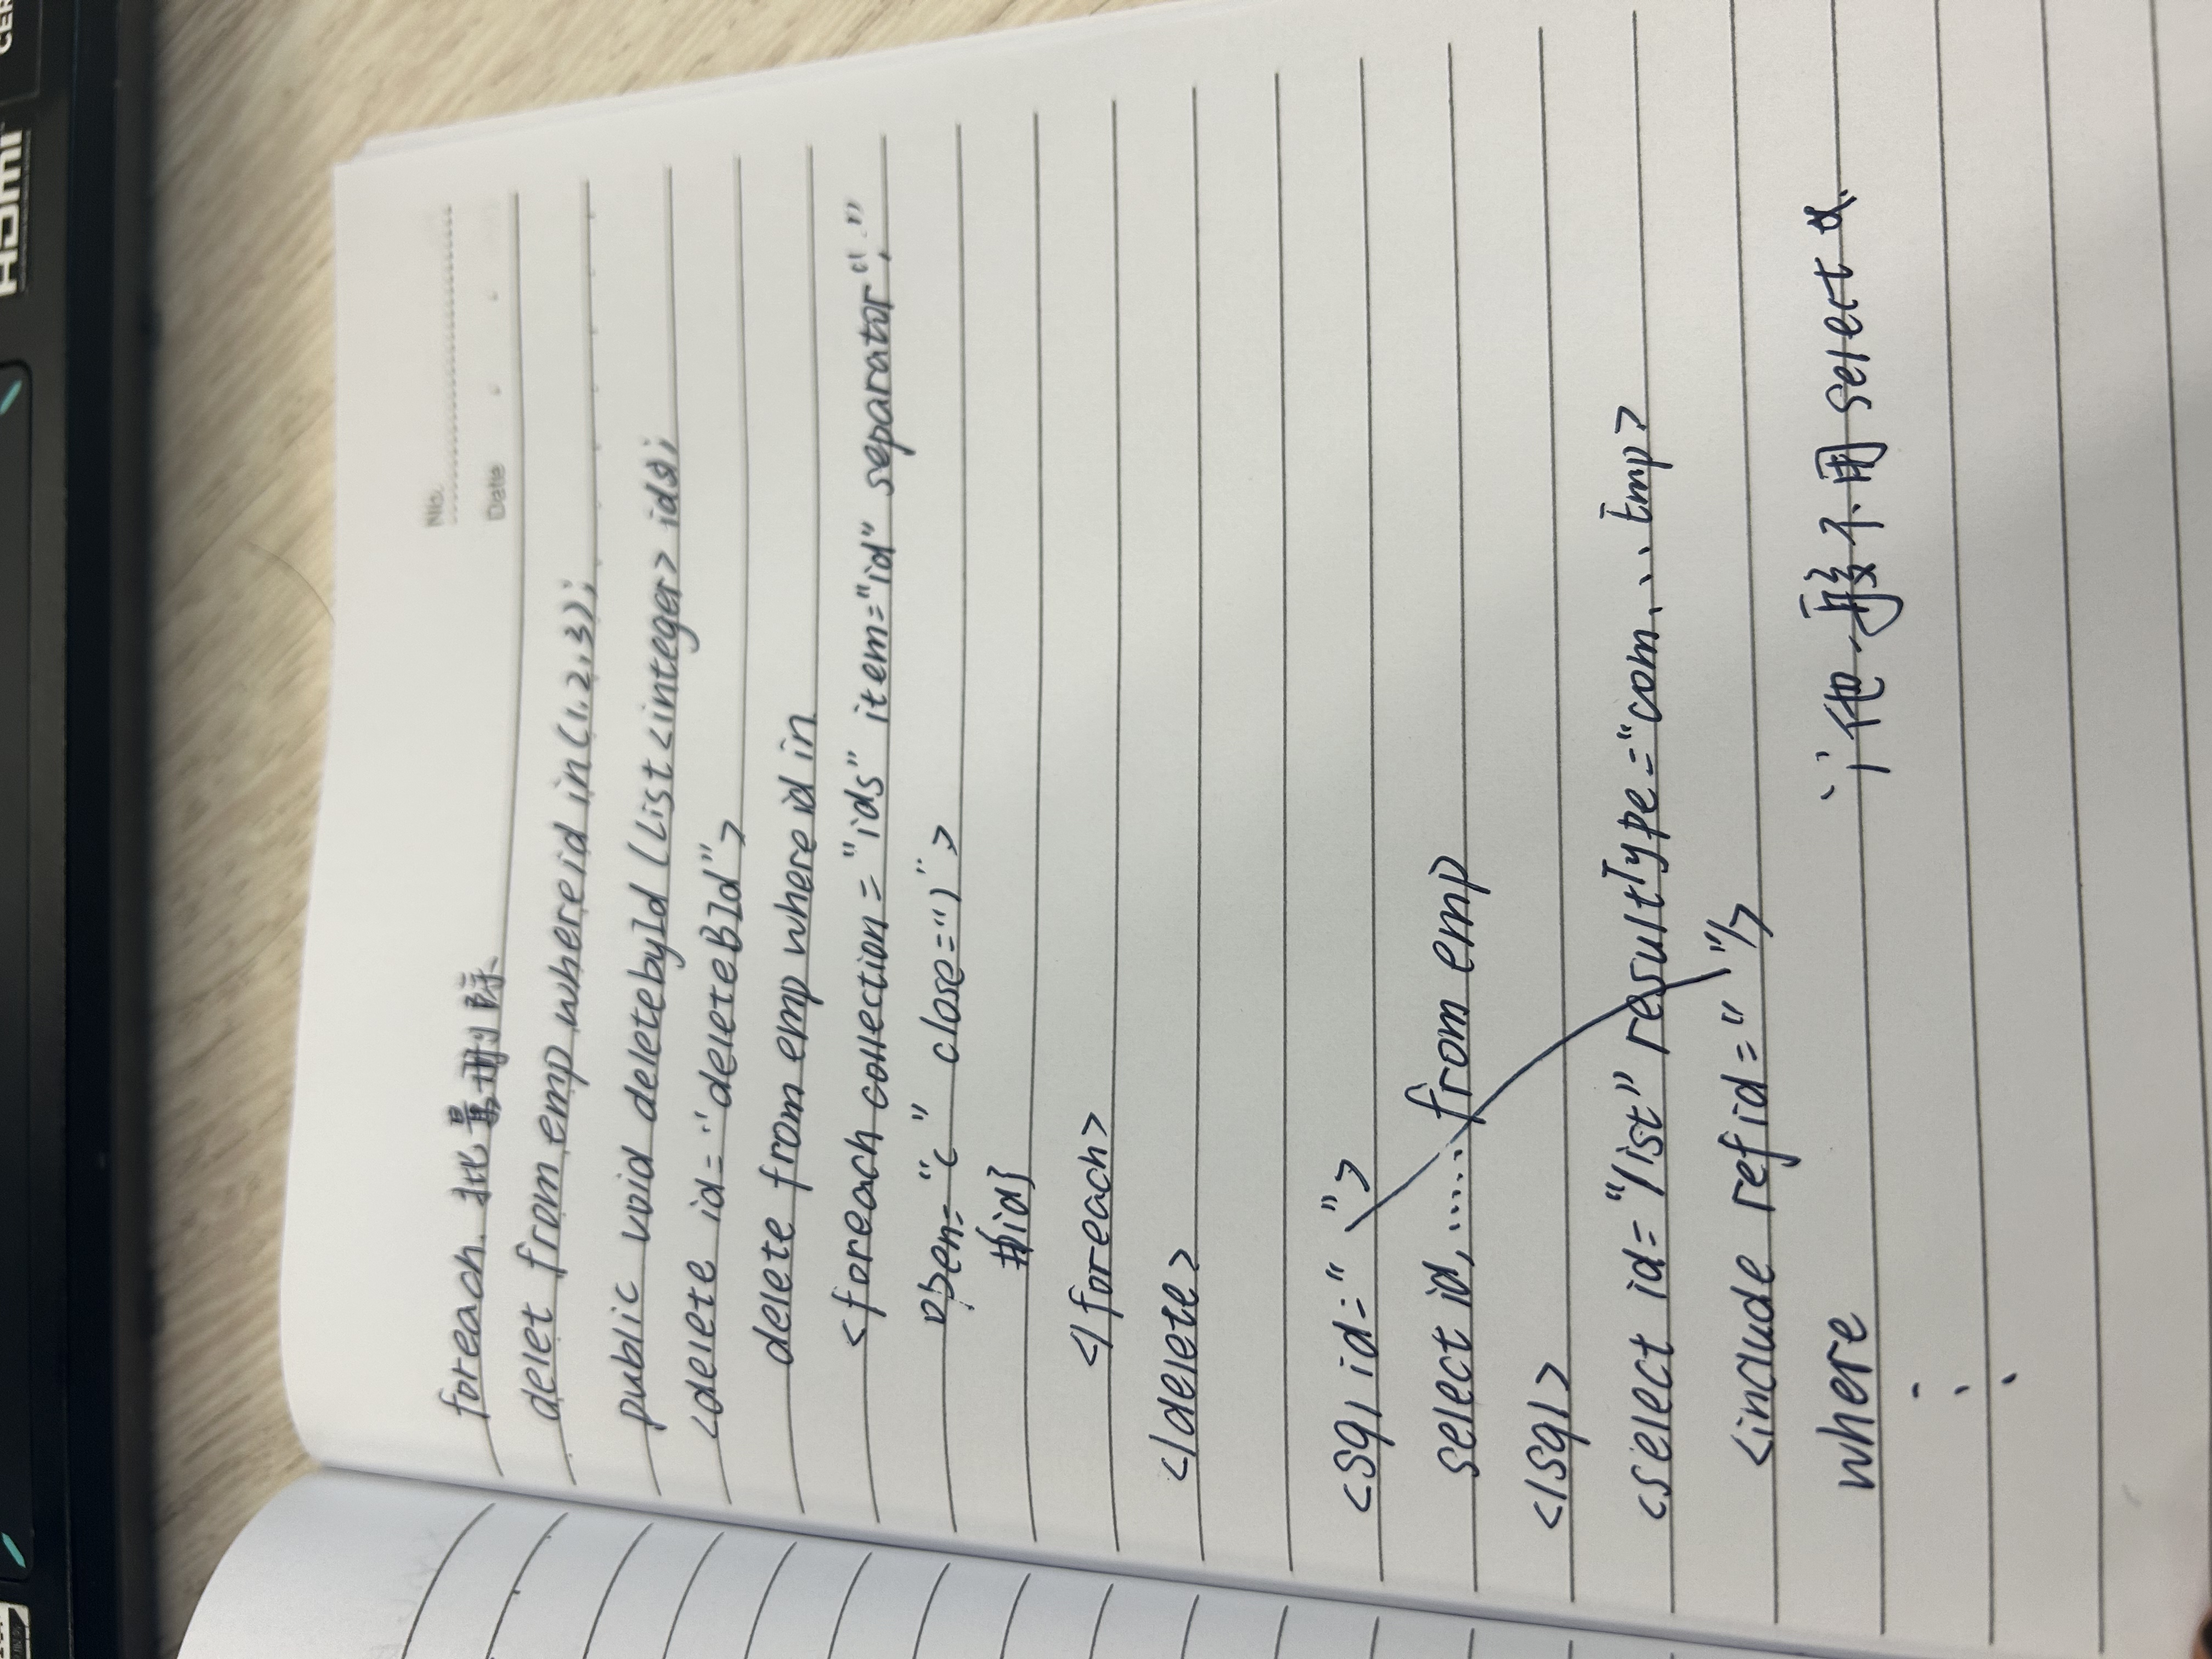 HDMI
CER
No.
Date
foreach. 批量删除
delet from emp where id in (1.2.3);
public void deletebyId (List<integer> ids);
<delete id="deleteBId">
delete from emp where id in
<foreach collection="ids" item="id" separator","
open="(" close=")">
#{id}
</foreach>
</delete>
<sql id=" ">
select id, ...... from emp
</sql>
<select id="list" resultType="com. .. Emp>
<include refid=" "/>
where
一般不用 select *.